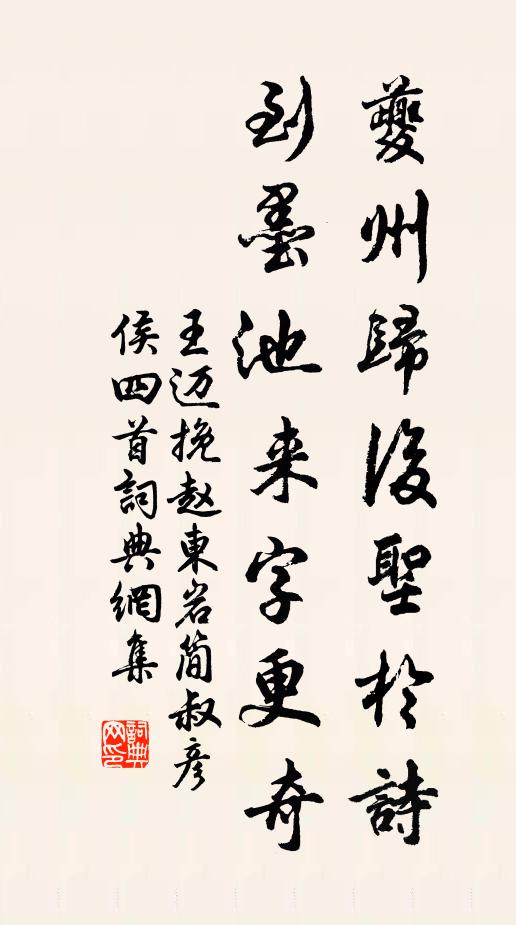 夔州歸後聖於詩
到墨池来字更奇
王迈挽赵東岩簡叔彦
侯四首詞典網集
詞典网印